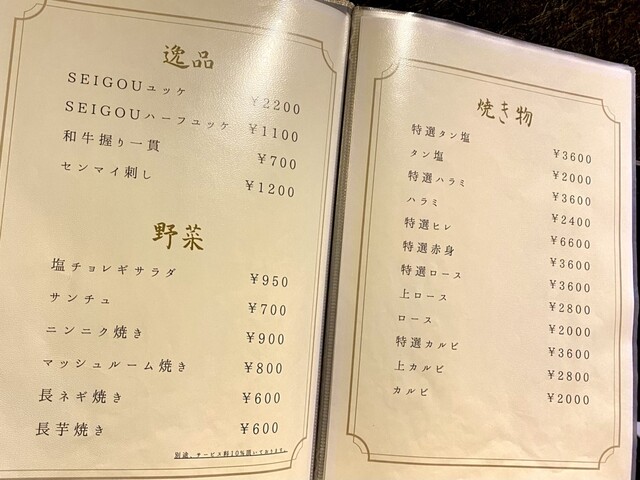 逸品
SEIGOUユッケ ¥2200
SEIGOUハーフユッケ ¥1100
和牛握り一貫 ¥700
センマイ刺し ¥1200
野菜
塩チョレギサラダ ¥950
サンチュ ¥700
ニンニク焼き ¥900
マッシュルーム焼き ¥800
長ネギ焼き ¥600
長芋焼き ¥600
別途、サービス料10%頂いております。
焼き物
特選タン塩 ¥3600
タン塩 ¥2000
特選ハラミ ¥3600
ハラミ ¥2400
特選ヒレ ¥6600
特選赤身 ¥3600
特選ロース ¥3600
上ロース ¥2800
ロース ¥2000
特選カルビ ¥3600
上カルビ ¥2800
カルビ ¥2000